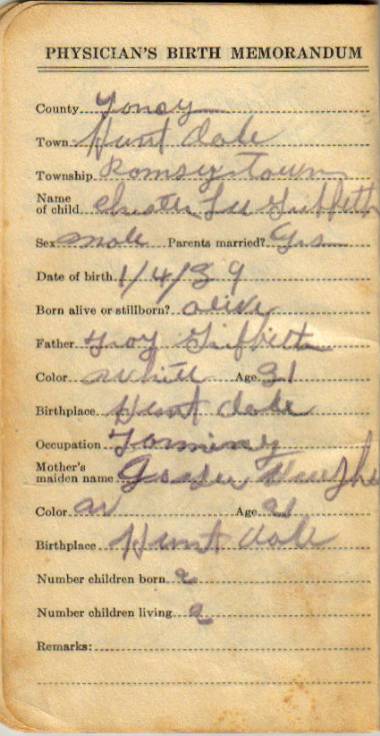 PHYSICIAN'S BIRTH MEMORANDUM
County Yoncy
Town Hunt dale
Township Romsey town
Name of child Chester Lee Griffeth
Sex male Parents married? Yes
Date of birth 1/4/39
Born alive or stillborn? alive
Father Troy Griffith
Color white Age 31
Birthplace Hunt dale
Occupation Forming
Mother's maiden name
Color W Age 21
Birthplace Hunt dale
Number children born 2
Number children living 2
Remarks: